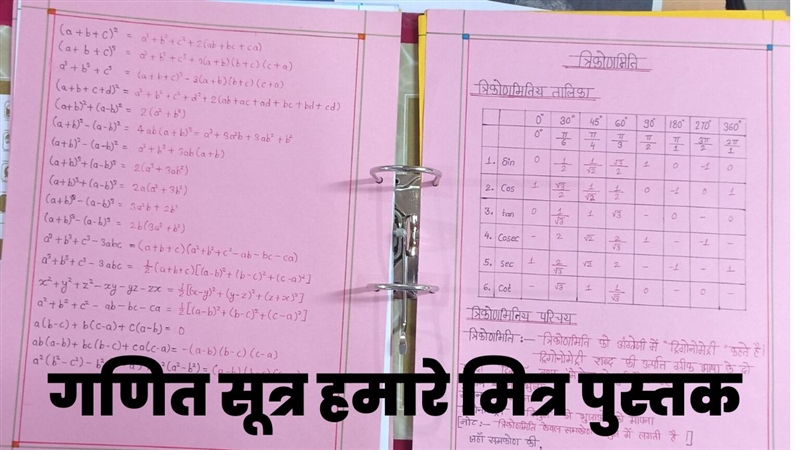 (a+b+c)² = a²+b²+c²+2(ab+bc+ca)
(a+b+c)³ = a³+b³+c³+3(a+b)(b+c)(c+a)
a³+b³+c³ = (a+b+c)³-3(a+b)(b+c)(c+a)
(a+b+c+d)² = a²+b²+c²+d²+2(ab+ac+ad+bc+bd+cd)
(a+b)²+(a-b)² = 2(a²+b²)
(a+b)²-(a-b)² = 4ab(a+b)³=a³+3a²b+3ab²+b³
(a+b)²-(a-b)² = a³+b³+3ab(a+b)
(a+b)³+(a-b)³ = 2(a³+3ab²)
(a+b)³+(a-b)³ = 2a(a²+3b²)
(a+b)³-(a-b)³ = 3a²b+2b³
(a+b)³-(a-b)³ = 2b(3a²+b²)
a³+b³+c³-3abc = (a+b+c)(a²+b²+c²-ab-bc-ca)
a³+b³+c³-3abc = ½(a+b+c)[(a-b)²+(b-c)²+(c-a)²]
x²+y²+z²-xy-yz-zx = ½[(x-y)²+(y-z)²+(z+x)²]
a²+b²+c²-ab-bc-ca = ½[(a-b)²+(b-c)²+(c-a)²]
a(b-c)+b(c-a)+c(a-b) = 0
ab(a-b)+bc(b-c)+ca(c-a) = -(a-b)(b-c)(c-a)
a²(b²-c²)-b²
त्रिकोणमिति
त्रिकोणमितिय तालिका
0° 30° 45° 60° 90° 180° 270° 360°
0° π/6 π/4 π/3 π/2 π/1 3π/2 2π/1
1. Sin 0 1/2 1/√2 √3/2 1 0 -1 0
2. Cos 1 √3/2 1/√2 1/2 0 -1 0 1
3. tan 0 1/√3 1 √3 - 0 - 0
4. Cosec - 2 √2 2/√3 1 - -1 -
5. Sec 1 2/√3 √2 2 - -1 - 1
6. Cot - √3 1 1/√3 0 - 0 -
त्रिकोणमितिय परिचय
त्रिकोणमिति :- त्रिकोणमिति को अंग्रेजी में "ट्रिगोनोमेट्री" कहते है।
ट्रिगोनोमेट्री शब्द की उत्पत्ति ग्रीक भाषा के दो
गणित सूत्र हमारे मित्र पुस्तक
मापना
[नोट:- त्रिकोणमिति केवल समकोण में लगती है।]
जहाँ समकोण की